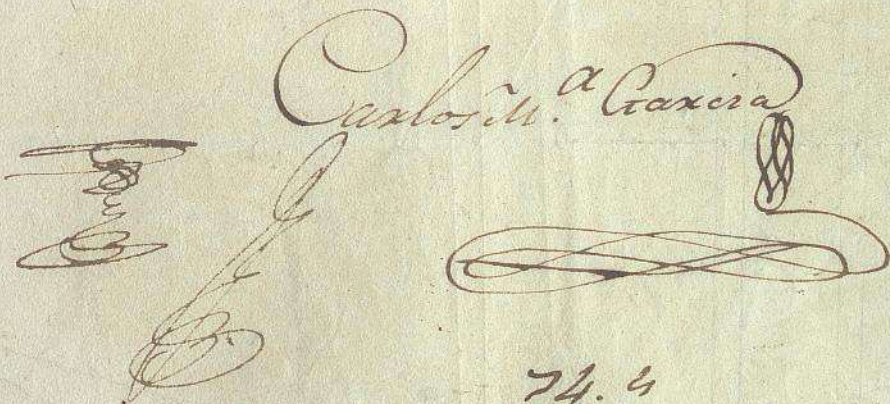 Carlos M.ª Garcia
74.4